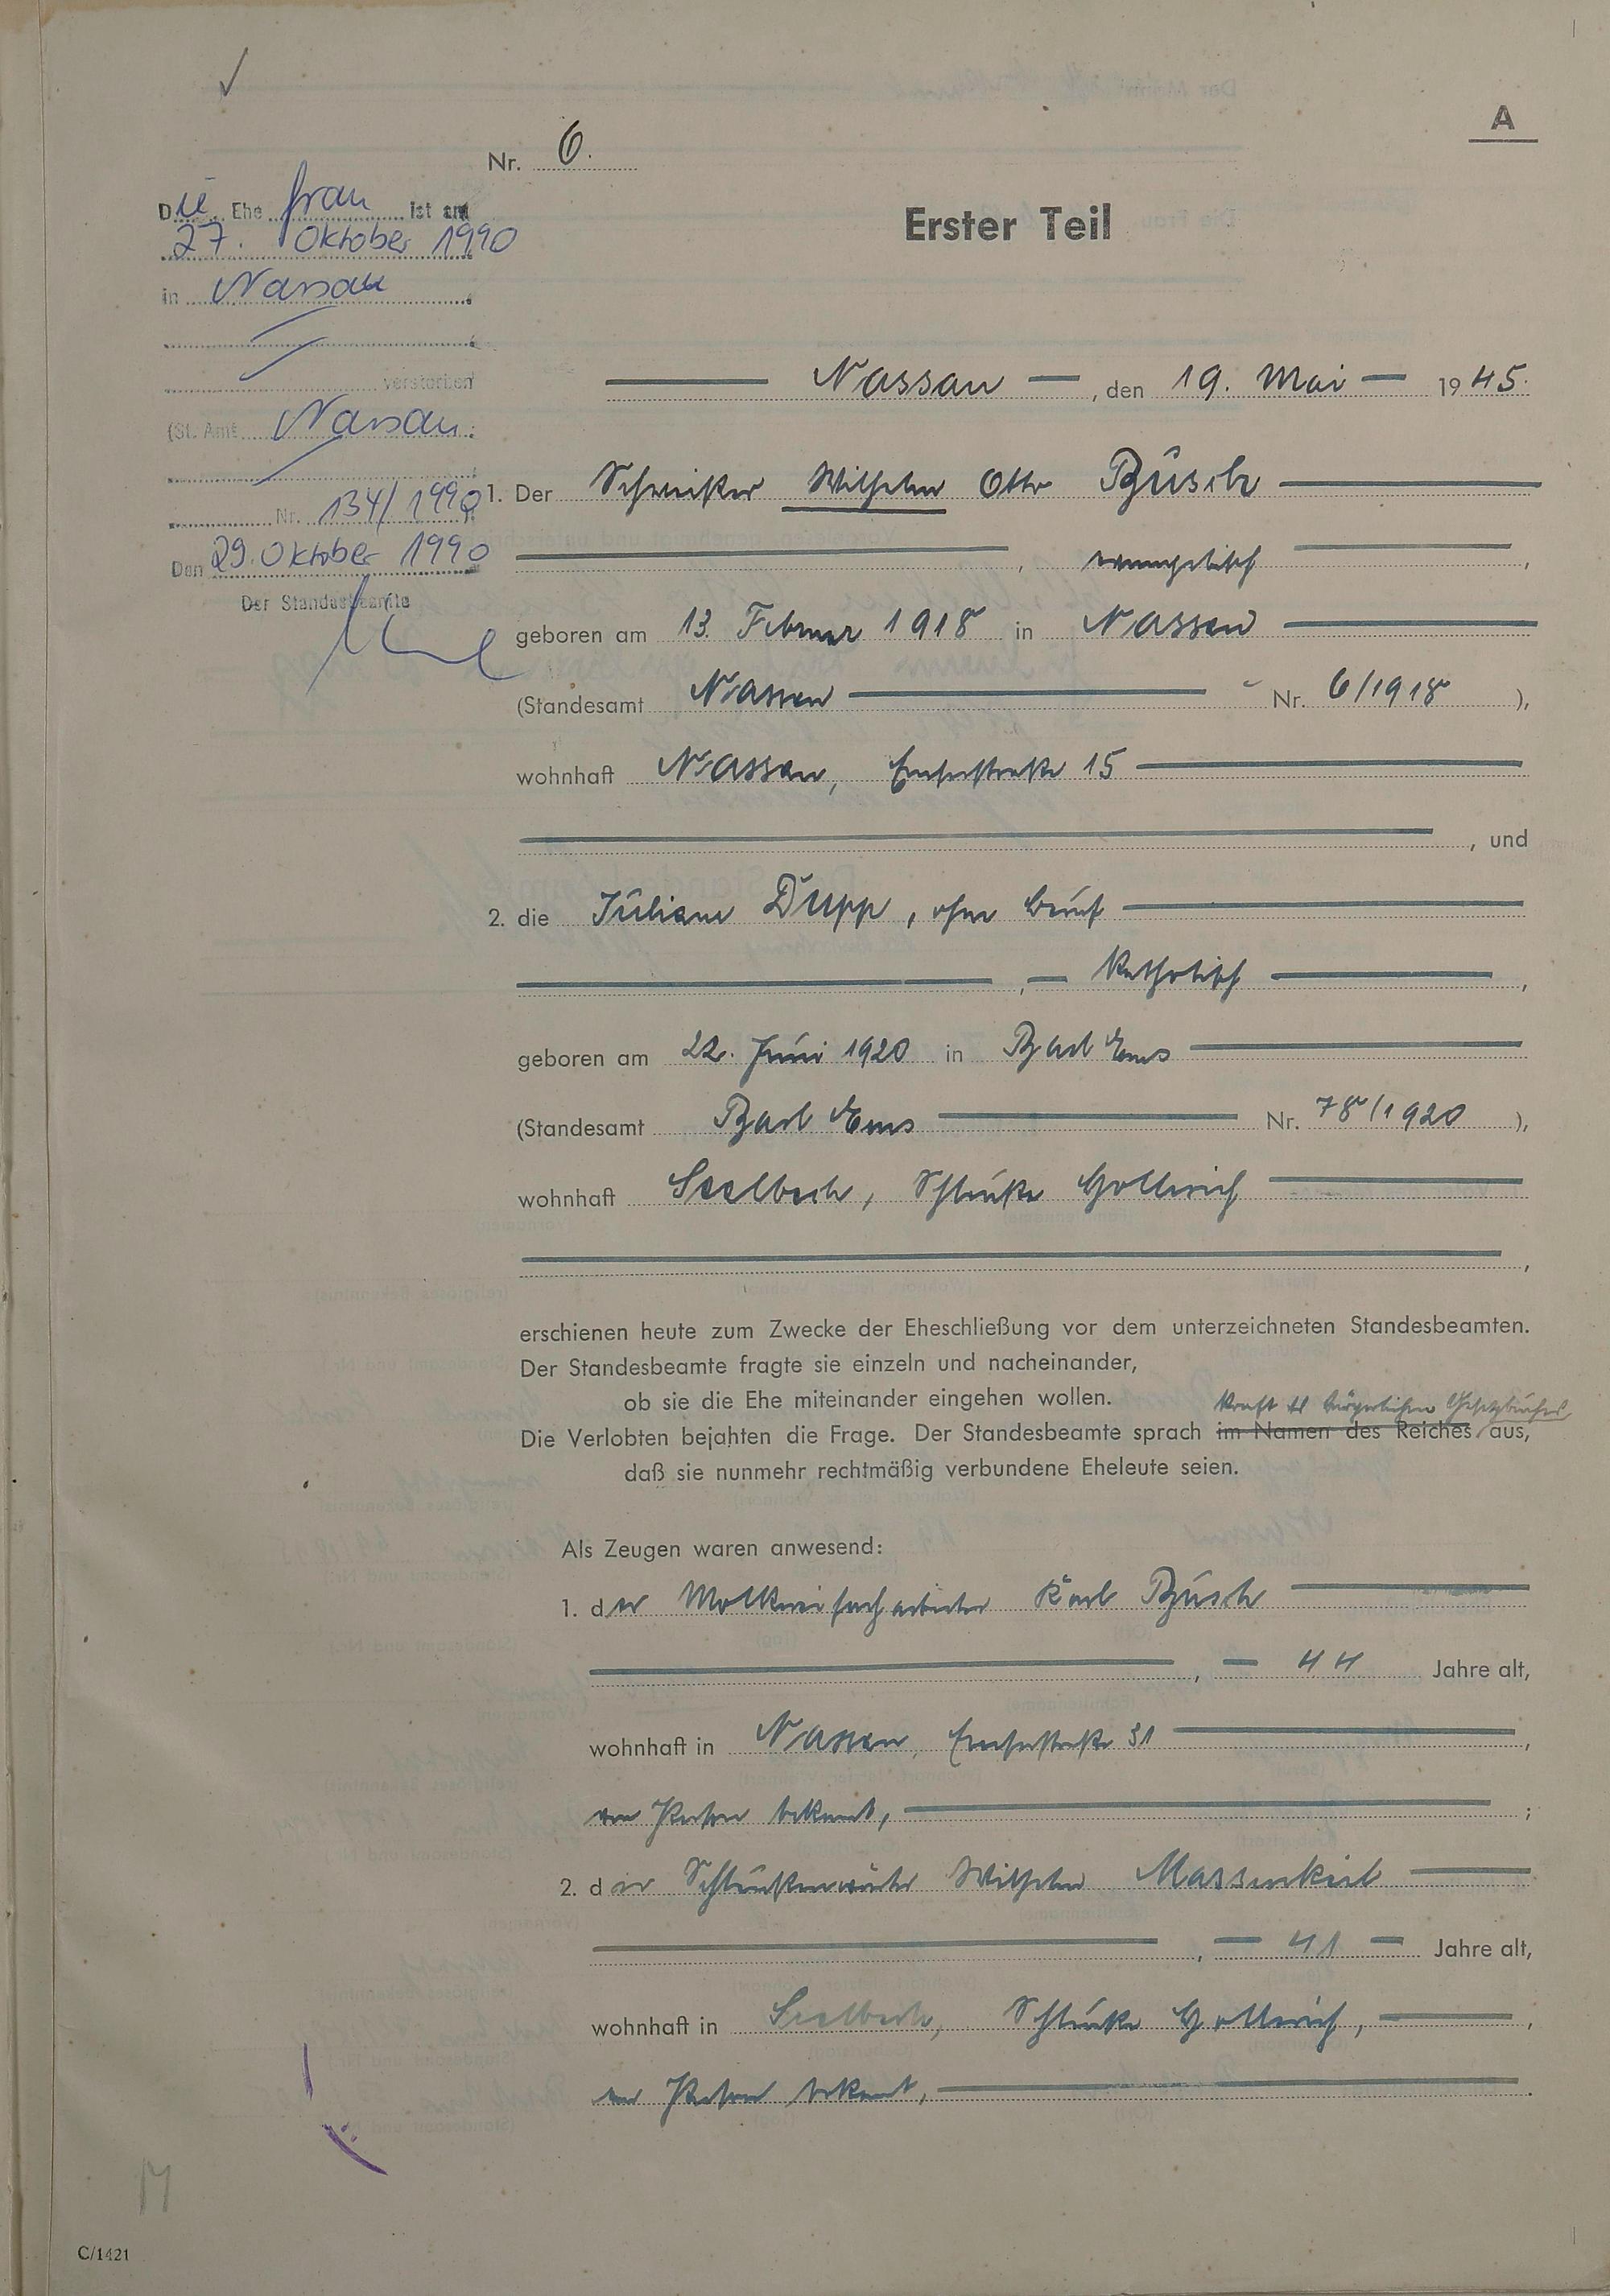 A
Nr. 6.
Erster Teil
Die Ehefrau ist am
27. Oktober 1990
in Nassau
verstorben
(St. Amt Nassau
Nr. 134/1990).
Den 29. Oktober 1990
Der Standesbeamte
Nassau, den 19. Mai 1945.
1. Der Wilhelm Otto Busch
, evangelisch,
geboren am 13. Februar 1918 in Nassau
(Standesamt Nassau Nr. 6/1918),
wohnhaft Nassau, Emserstraße 15
, und
2. die Juliane Dupp, ohne Beruf
, katholisch,
geboren am 22. Juni 1920 in Bad Ems
(Standesamt Bad Ems Nr. 78/1920),
wohnhaft Seelbach, Schleuße Hollerich
,
erschienen heute zum Zwecke der Eheschließung vor dem unterzeichneten Standesbeamten.
Der Standesbeamte fragte sie einzeln und nacheinander,
ob sie die Ehe miteinander eingehen wollen.
kraft des bürgerlichen Gesetzbuches
Die Verlobten bejahten die Frage. Der Standesbeamte sprach im Namen des Reiches aus,
daß sie nunmehr rechtmäßig verbundene Eheleute seien.
Als Zeugen waren anwesend:
1. der Molkereifacharbeiter Karl Busch
, 44 Jahre alt,
wohnhaft in Nassau, Emserstraße 31,
von Person bekannt, ;
2. der Schleußenwärter Wilhelm Massenkeil
, 41 Jahre alt,
wohnhaft in Seelbach, Schleuße Hollerich, ,
von Person bekannt, .
C/1421